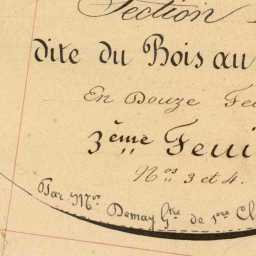 Section
dite du Bois au
En Douze Feu
3ème Feui
Nos 3 et 4.
Par Mr Demay Gtre de 1ère Cl